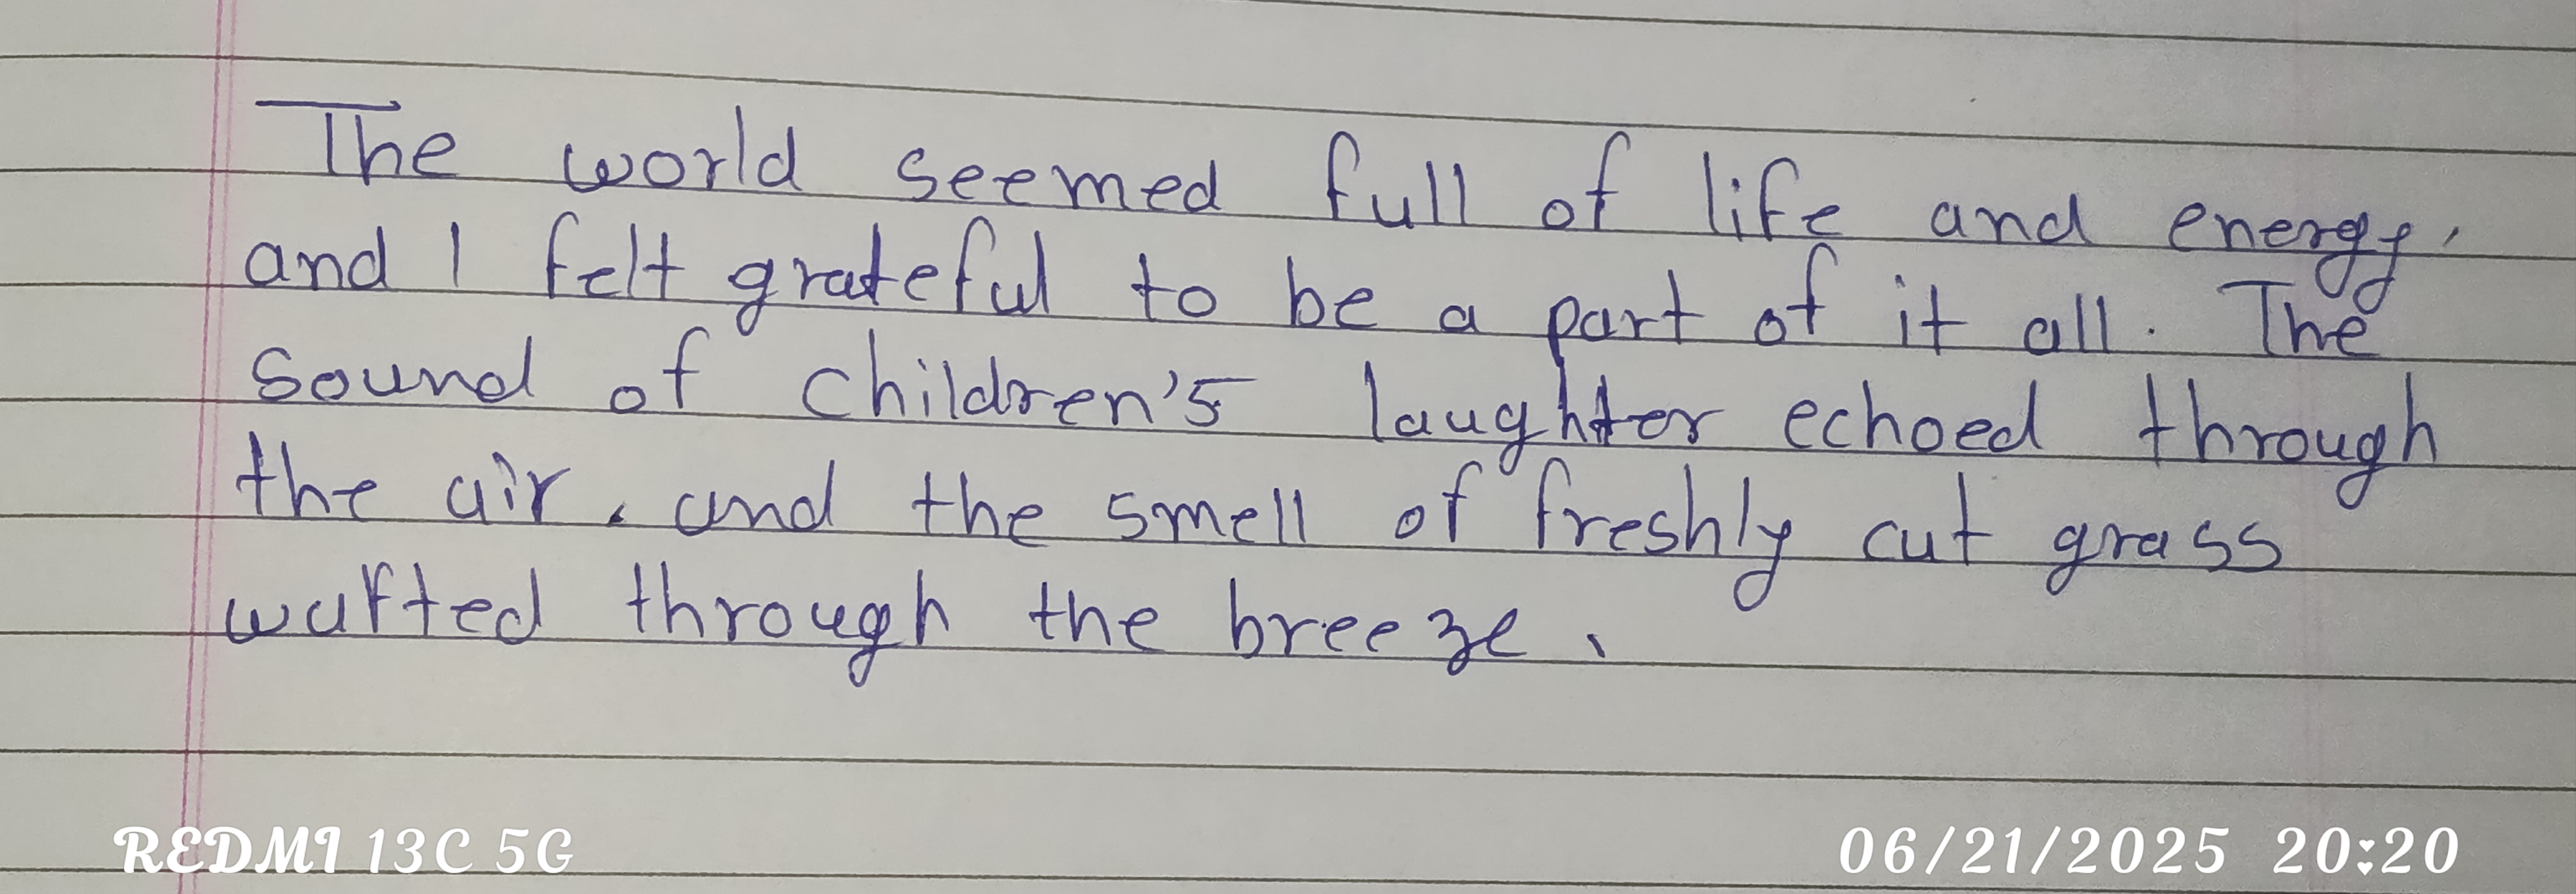 The world seemed full of life and energy,
and I felt grateful to be a part of it all. The
sound of children's laughter echoed through
the air, and the smell of freshly cut grass
wafted through the breeze.
REDMI 13C 5G
06/21/2025 20:20